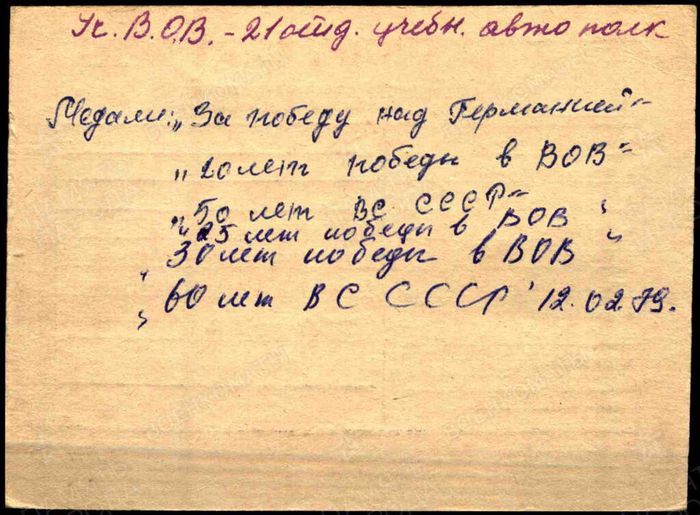 Уч. В.О.В. - 21 отд. учебн. авто полк
Медали: „За победу над Германией"
„20 лет победы в ВОВ"
„50 лет ВС СССР"
„25 лет победы в ВОВ"
„30 лет победы в ВОВ"
„60 лет ВС СССР" 12.02.79.